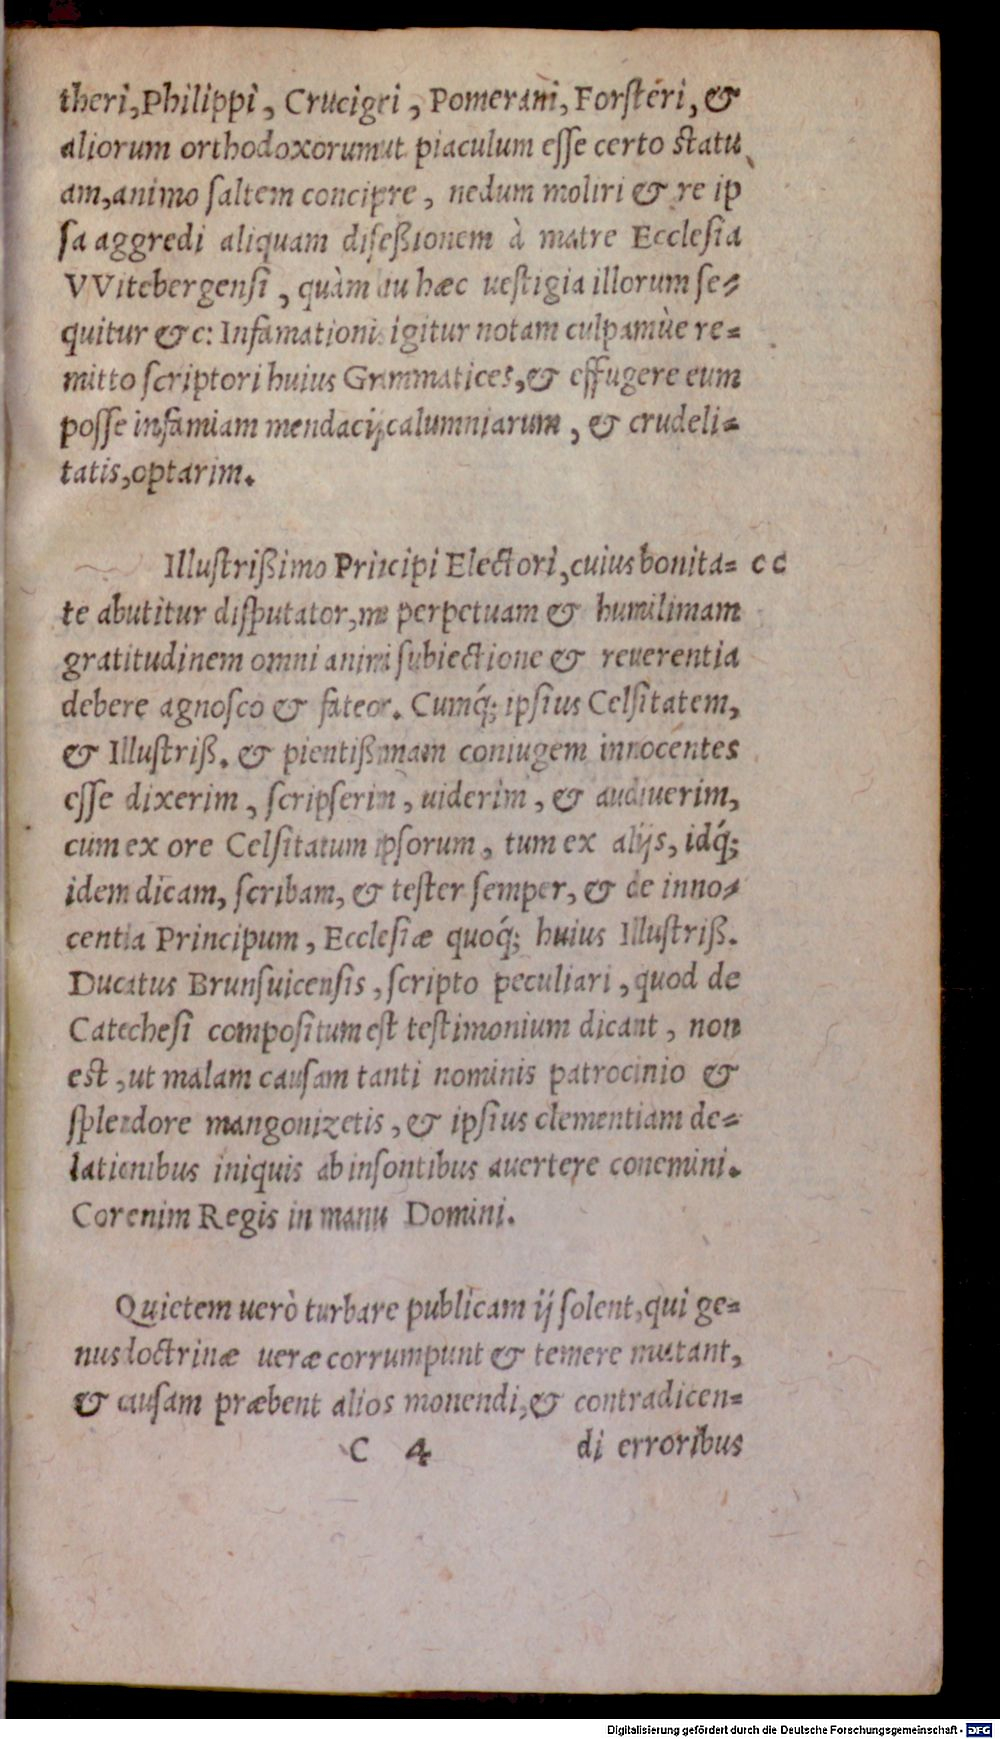 theri, Philippi, Crucigeri, Pomerani, Forsteri, &
aliorum orthodoxorum ut piaculum esse certo statu
am, animo saltem concipre, nedum moliri & re ip
sa aggredi aliquam diseßionem à matre Ecclesia
VVitebergensi, quàm diu hæc uestigia illorum se=
quitur &c: Infamationis igitur notam culpamùe re=
mitto scriptori huius Grammatices, & effugere eum
posse infamiam mendacij calumniarum, & crudeli=
tatis, optarim.
Illustrißimo Principi Electori, cuius bonita= c c
te abutitur disputator, me perpetuam & humilimam
gratitudinem omni animi subiectione & reuerentia
debere agnosco & fateor. Cumq́; ipsius Celsitatem,
& Illustriß. & pientißimam coniugem innocentes
esse dixerim, scripserim, uiderim, & audiuerim,
cum ex ore Celsitatum ipsorum, tum ex alijs, idq́;
idem dicam, scribam, & tester semper, & de inno=
centia Principum, Ecclesiæ quoq́; huius Illustriß.
Ducatus Brunsuicensis, scripto peculiari, quod de
Catechesi compositum est testimonium dicant, non
est, ut malam causam tanti nominis patrocinio &
splendore mangonizetis, & ipsius clementiam de=
lationibus iniquis ab insontibus auertere conemini.
Cor enim Regis in manu Domini.
Quietem uerò turbare publicam ij solent, qui ge=
nus doctrinæ ueræ corrumpunt & temere mutant,
& causam præbent alios monendi, & contradicen=
C 4 di erroribus
Digitalisierung gefördert durch die Deutsche Forschungsgemeinschaft - DFG